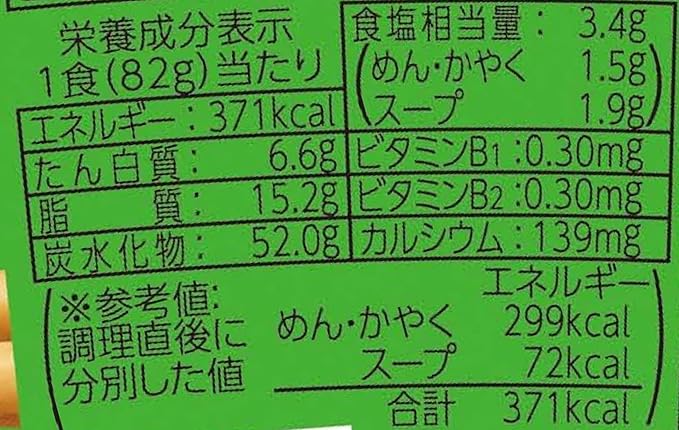 栄養成分表示
1食(82g)当たり
エネルギー:371kcal
たん白質: 6.6g
脂 質: 15.2g
炭水化物: 52.0g
食塩相当量: 3.4g
(めん・かやく 1.5g
スープ 1.9g)
ビタミンB1:0.30mg
ビタミンB2:0.30mg
カルシウム:139mg
※参考値:
調理直後に
分別した値
エネルギー
めん・かやく 299kcal
スープ 72kcal
合計 371kcal